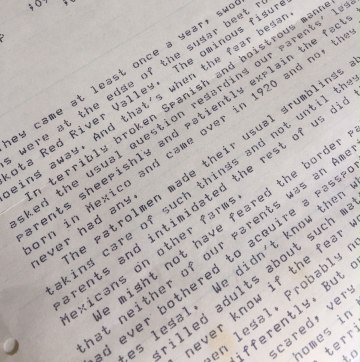 They came at least once a year, swoo
us were at the edge of the sugar beet ro
kota Red River Valley. The ominous figures
oeing away. And that's when the fear began.
In terribly broken Spanish and boistrous manner
asked the usual question regarding our parents' lega
parents sheepishly and patiently explain the facts
born in Mexico and came over in 1920 and no, they
never had any.
The patrolmen made their usual grumblings ab
taking care of such things and not until tha
parents and intimidated the rest of us did t
Mexicans on other farms.
We might not have feared the border p
that neither of our parents was an Amer
had ever bothered to acquire a passpo
tes legal. We didn't know then th
grilled adults about such mat
never know if the fear
een legal. Probably
differently. But
scared, very
homes in